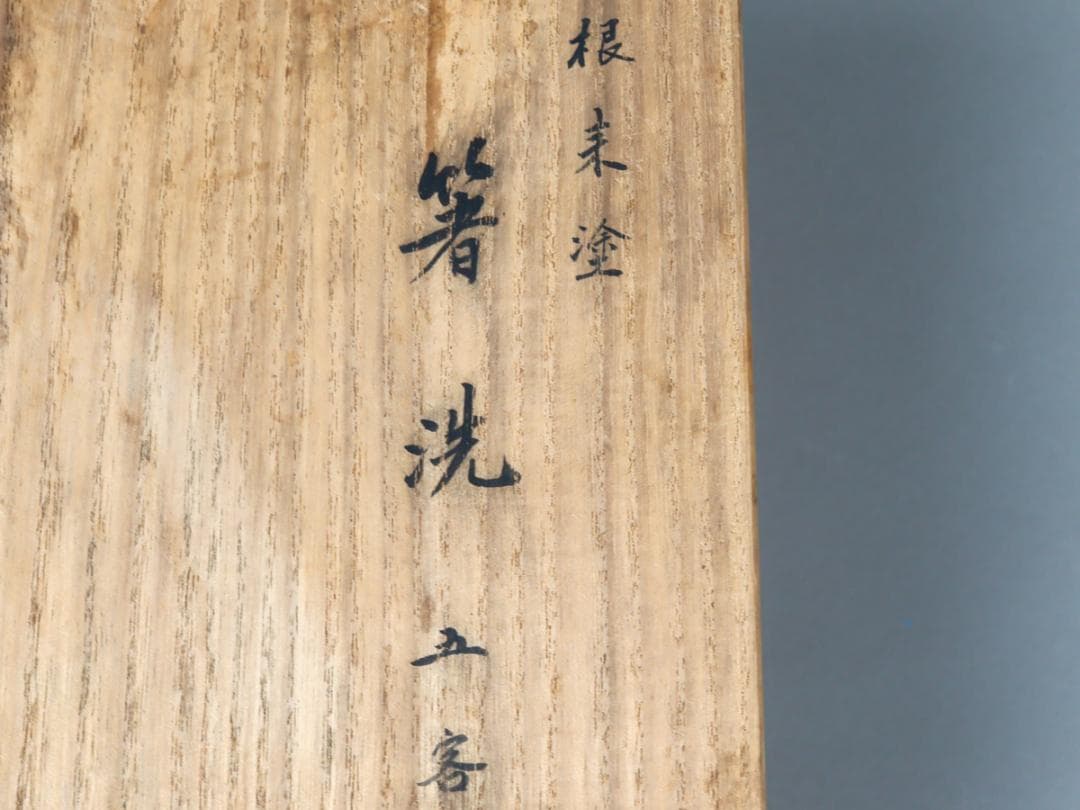 根来塗
箸洗 五客